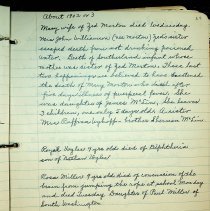 About 1902 or 3
Mary wife of Zed Morton died Wednesday.
Mrs John Williamson (nee Morton) Zed's sister
escaped death from not drinking poisoned
water. Death of brother and infant whose
mother was sister of Zed Morton. These last
two happenings are believed to have hastened
the death of Mary Morton who last after
five days illness of puerperal fever. She
was daughter of James McLinn. She leaves
3 children, one only 5 days old. A sister
Mrs Caffrey & half brother Sherman McLinn

Royal Hughes 9 year old dies of Diphtheria
son of Nathan Hughes

Rosa Miller 9 year old died of concussion of the
brain from jumping the rope at school Monday
and died Tuesday. Daughter of Bert Miller of
South Washington